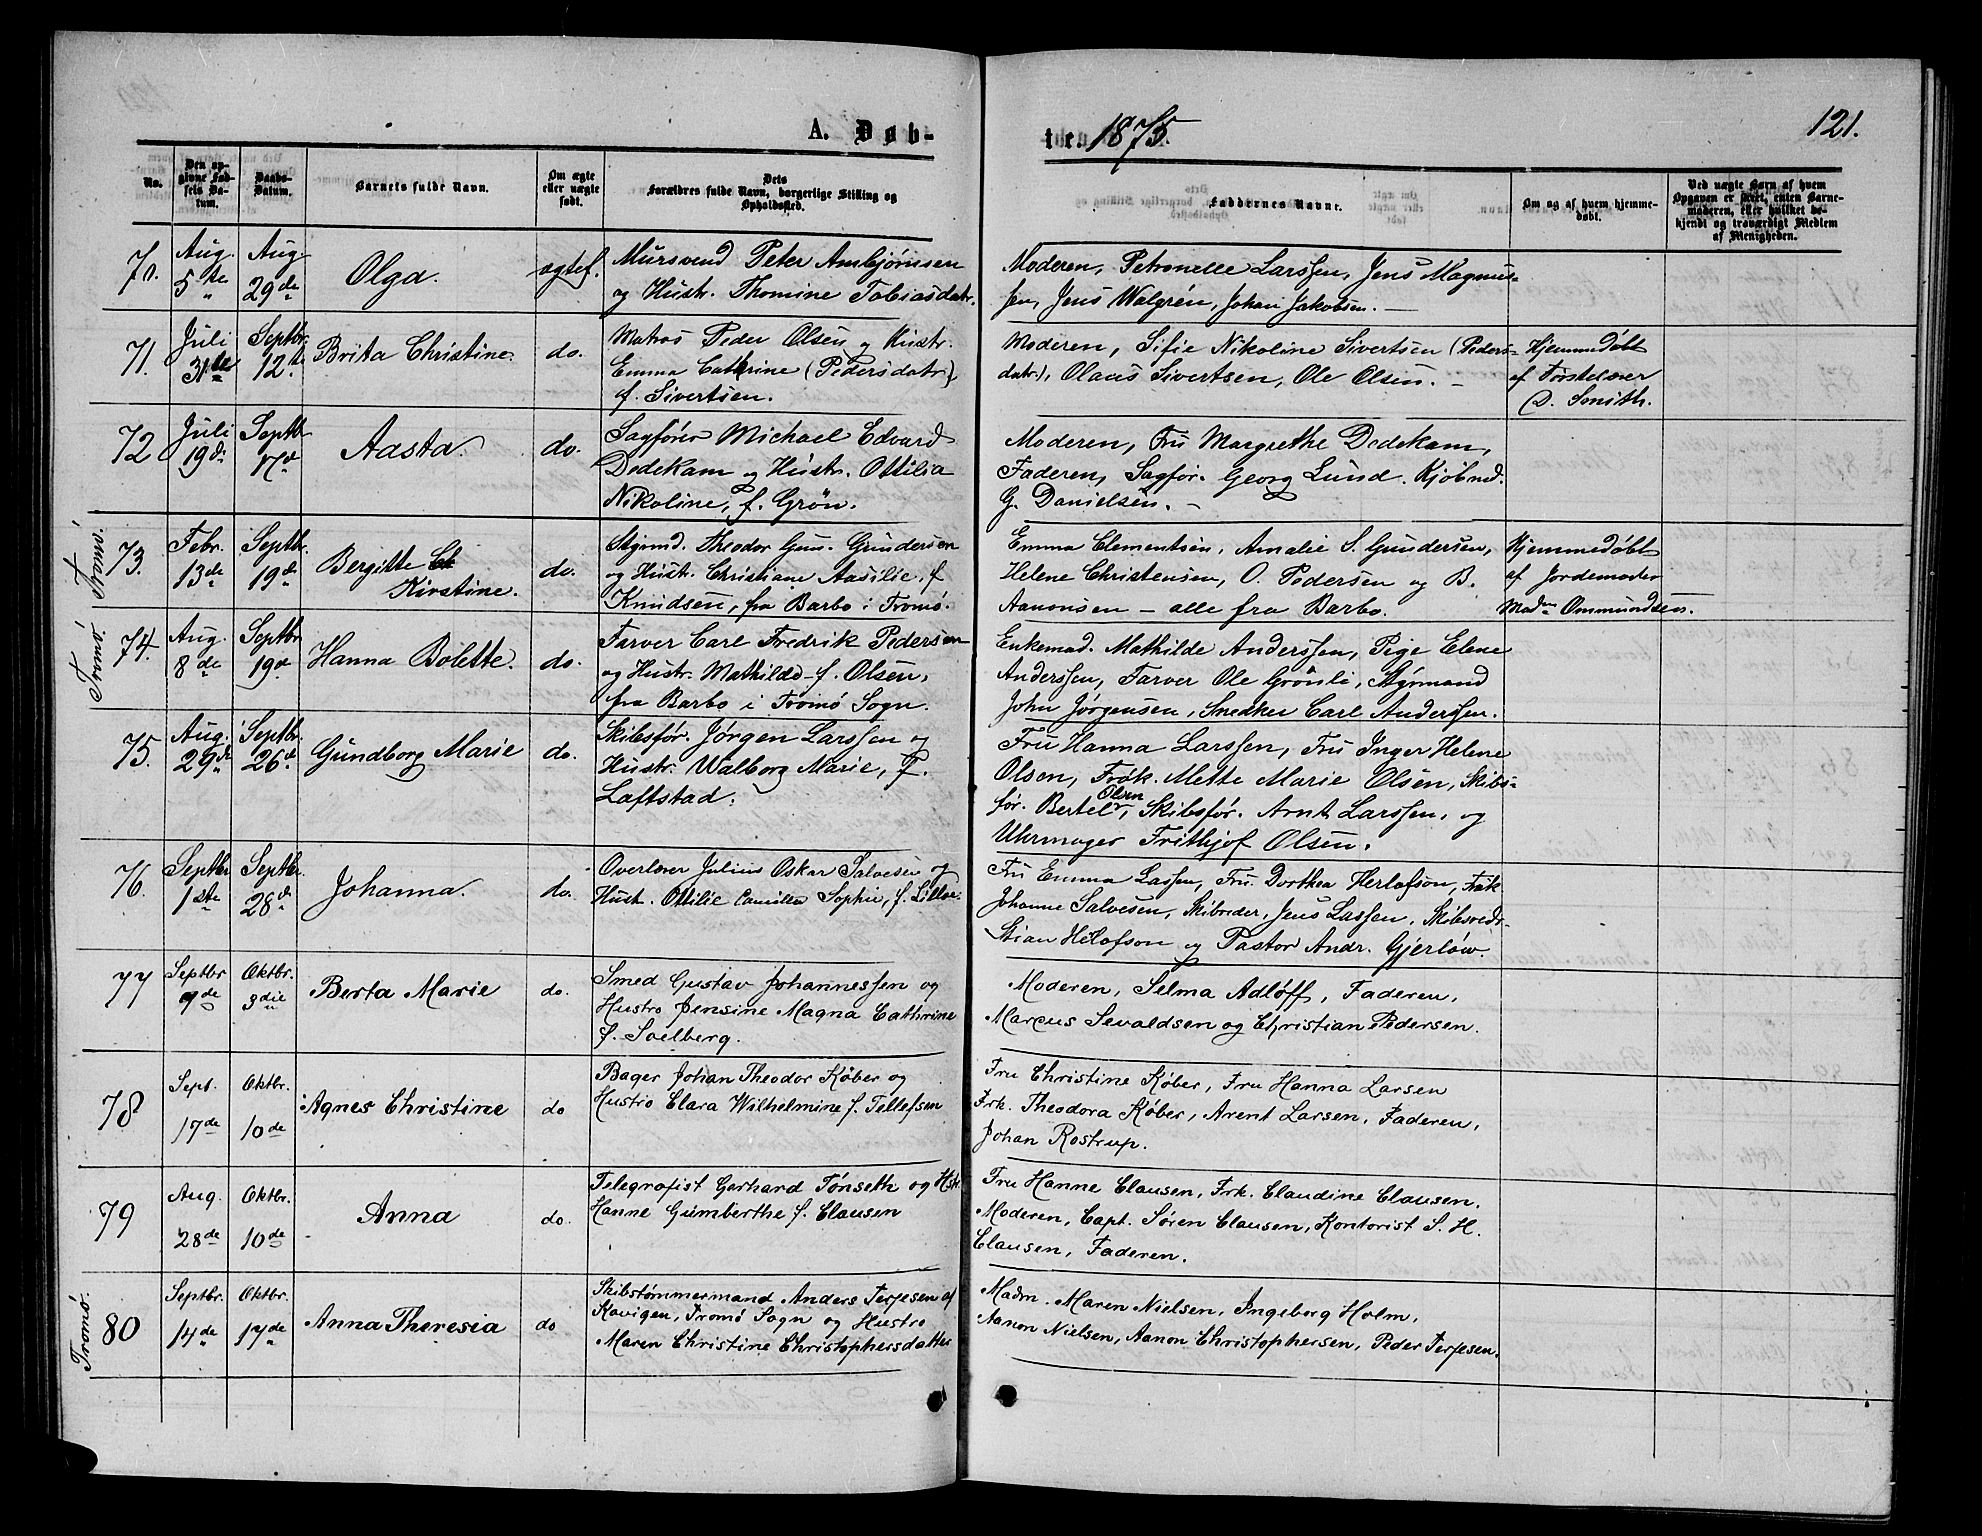 121.
A. Døb-
te. 1875.
No.
Den opgivne Fødsels Datum.
Daabs-Datum.
Barnets fulde Navn.
Om ægte eller uægte født.
Dets Forældres fulde Navn, borgerlige Stilling og Opholdssted.
Faddernes Navne.
Om og af hvem hjemmedøbt.
Ved uægte Børn af hvem Opgaven er skeet, enten Barnemoderen, eller hvilket bekjendt og troværdigt Medlem af Menigheden.
71. Aug. 5te Aug 29de Olga. ægtef.
Mursvend Peter Ambjørnsen
og Hustr. Thomine Tobiasdatr.
Moderen, Petronelle Larssen, Jens Magnus-
sen, Jens Walgrén, Johan Jakobsen. —
71. Juli 31te Septbr. 12te Brita Christine. do.
Matros Peder Olsen og Hustr.
Emma Cathrine (Pedersdatr.)
f. Sivertsen.
Moderen, Sifie Nikoline Sivertsen (Peders-
datr.), Olaus Sivertsen, Ole Olsen. —
Hjemmedøbt
af Førstelærer
D. Smith.
72 Juli 19de Septbr 17de Aasta. do.
Sagfører Michael Edvard
Dedekam og Hustr. Ottilia
Nikoline, f. Grön.
Moderen, Fru Margrethe Dedekam,
Faderen, Sagfør. Georg Lund. Kjøbmd.
G. Danielsen. —
Tromö.
73. Febr. 13de Septbr. 19de Bergitte
Kirstine. do.
Styrmd. Theodor Gun. Gundersen
og Hustr. Christiane Aasilie, f
Knudsen, fra Barbo i Tromö.
Emma Clementsen, Amalie S. Gundersen,
Helene Christensen, O. Pedersen og B.
Aanonsen — alle fra Barbo.
Hjemmedøbt
af Jordemoder
Madm Ommundsen.
Tromö.
74. Aug. 8de Septbr 19de Hanna Bolette. do.
Farver Carl Fredrik Pedersen
og Hustr. Mathilde f. Olsen,
fra Barbo i Tromö Sogn.
Enkemad. Mathilde Anderssen, Pige Elene
Anderssen, Farver Ole Grönli, Styrmand
John Jörgensen, Snedker Carl Anderssen.
75. Aug. 29de Septbr. 26de Gundborg Marie do.
Skibsför. Jörgen Larssen og
Hustr. Walborg Marie, f.
Laftstad.
Fru Hanna Larssen, Fru Inger Helene
Olsen, Frøk. Mette Marie Olsen, Skibs-
för. Bertel Olsen, Skibsfør. Arnt Larssen, og
Uhrmager Frithjof Olsen.
76. Septbr. 1ste Septbr. 28de Johanna. do.
Overlærer Julius Oskar Salvesen og
Hustr. Ottilie Camilla Sophie, f. Lilloe.
Fru Emma Lassen, Fru. Dorthea Herlofson, Frøk
Johanne Salvesen, Skibreder, Jens Lassen, Skibsredr
Stian Herlofson og Pastor Andr. Gjerlöw.
77 Septbr 9de Oktbr. 3die Berta Marie do.
Smed Gustav Johannessen og
Hustro Jensine Magna Cathrine
f. Soelberg.
Moderen, Selma Adløff, Faderen,
Marcus Sevaldsen og Christian Pedersen.
78 Sept. 17de Oktbr. 10de Agnes Christine do
Bager Johan Theodor Køber og
Hustro Clara Wilhelmine f. Tellefsen
Fru Christine Køber, Fru Hanna Larsen
Frk. Theodora Køber, Arent Larsen, Faderen,
Johan Rostrup.
79 Aug. 28de Oktbr. 10de Anna do.
Telegrafist Gerhard Tønseth og Hstr.
Hanne Gumberthe f. Clausen
Fru Hanne Clausen, Frk. Claudine Clausen.
Moderen, Capt. Søren Clausen, Kontorist S. H.
Clausen, Faderen.
Tromö.
80 Septbr. 14de Oktbr. 17de Anna Theresia do
Skibstømmermand Anders Terjesen af
Kovigen, Tromö Sogn og Hustro
Maren Christine Christophersdatter
Madm. Maren Nielsen, Ingeborg Holm,
Aanon Nielsen, Aanon Christophersen, Peder Terjesen.